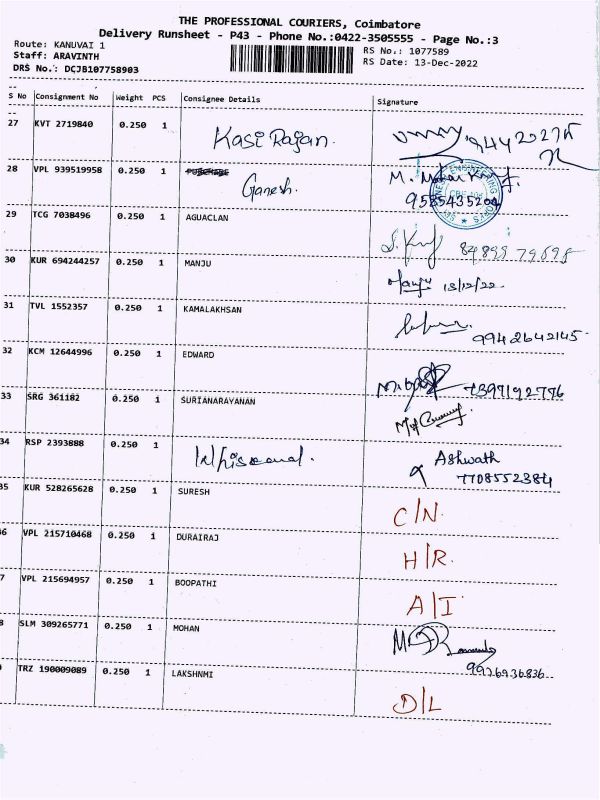 THE PROFESSIONAL COURIERS, Coimbatore
Delivery Runsheet - P43 - Phone No.:0422-3505555 - Page No.:3
Route: KANUVAI 1
Staff: ARAVINTH
DRS No.: DCJB107758903
RS No.: 1077589
RS Date: 13-Dec-2022
S No Consignment No Weight PCS Consignee Details Signature
27 KVT 2719840 0.250 1 Kasi Rajan.
28 VPL 939519958 0.250 1 Ganesh. M.
9585435204
29 TCG 7038496 0.250 1 AGUACLAN
30 KUR 694244257 0.250 1 MANJU Manju 13/12/22
31 TVL 1552357 0.250 1 KAMALAKHSAN 9942642145
32 KCM 12644996 0.250 1 EDWARD
33 SRG 361182 0.250 1 SURIANARAYANAN
34 RSP 2393888 0.250 1 Ashwath
7708552384
35 KUR 528265628 0.250 1 SURESH C/N.
36 VPL 215710468 0.250 1 DURAIRAJ H/R.
7 VPL 215694957 0.250 1 BOOPATHI A/I
8 SLM 309265771 0.250 1 MOHAN
9926936836
TRZ 190009089 0.250 1 LAKSHNMI D/L